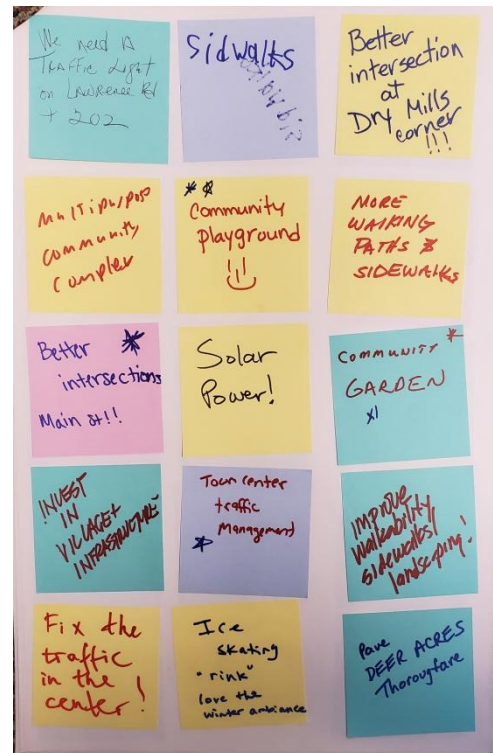 We need A
Traffic Light
on Lawrence Rd
+ 202
Sidwalks
Better
intersection
at
Dry Mills
corner
!!!
multipurpose
community
complex
Community
Playground
MORE
WALKING
PATHS &
SIDEWALKS
Better
intersections
Main st!!
Solar
Power!
COMMUNITY
GARDEN
x1
INVEST
IN
VILLAGE+
INFRASTRUCTURE
Town center
traffic
Management
IMPROVE
Walkability
sidewalks/
landscaping!
Fix the
traffic
in the
center!
Ice
skating
"rink"
love the
winter ambiance
Pave
DEER ACRES
Thorougtare